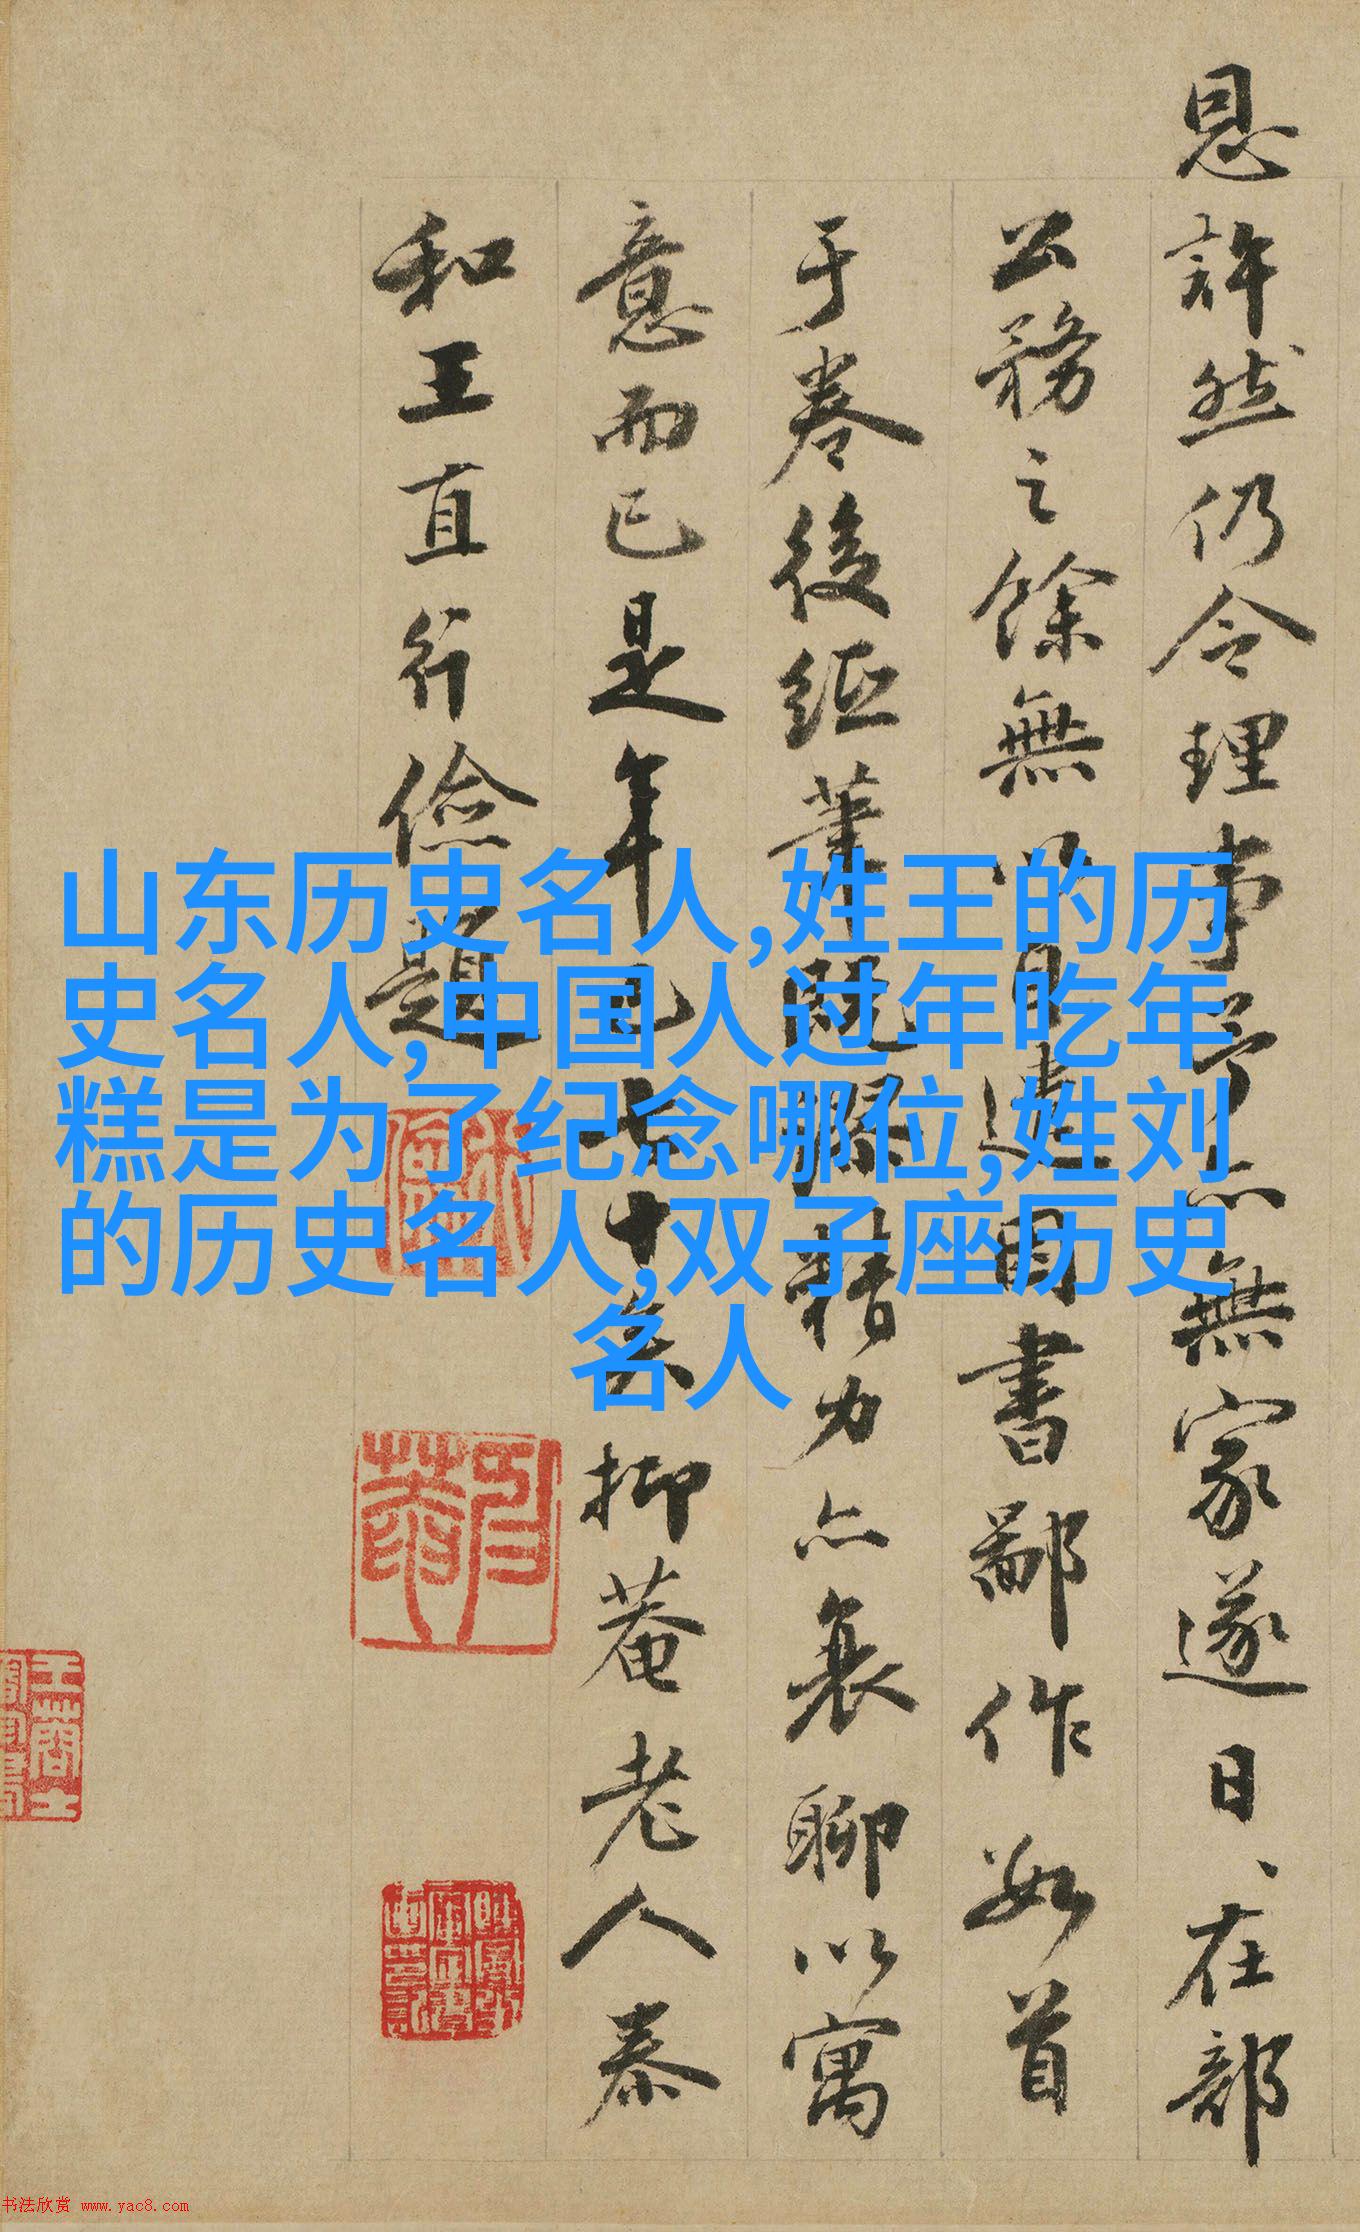 恩許然仍令理事予亦無家遂日、在部
公務之餘無以自遣因書鄙作數首
于卷後紙筆既繆精力亦衰聊以寓
意而已是年已七十矣抑菴老人泰
和王直行儉題
山东历史名人,姓王的历
史名人,中国人过年吃年
糕是为了纪念哪位,姓刘
的历史名人,双子座历史
名人
书法欣赏 www.yac8.com